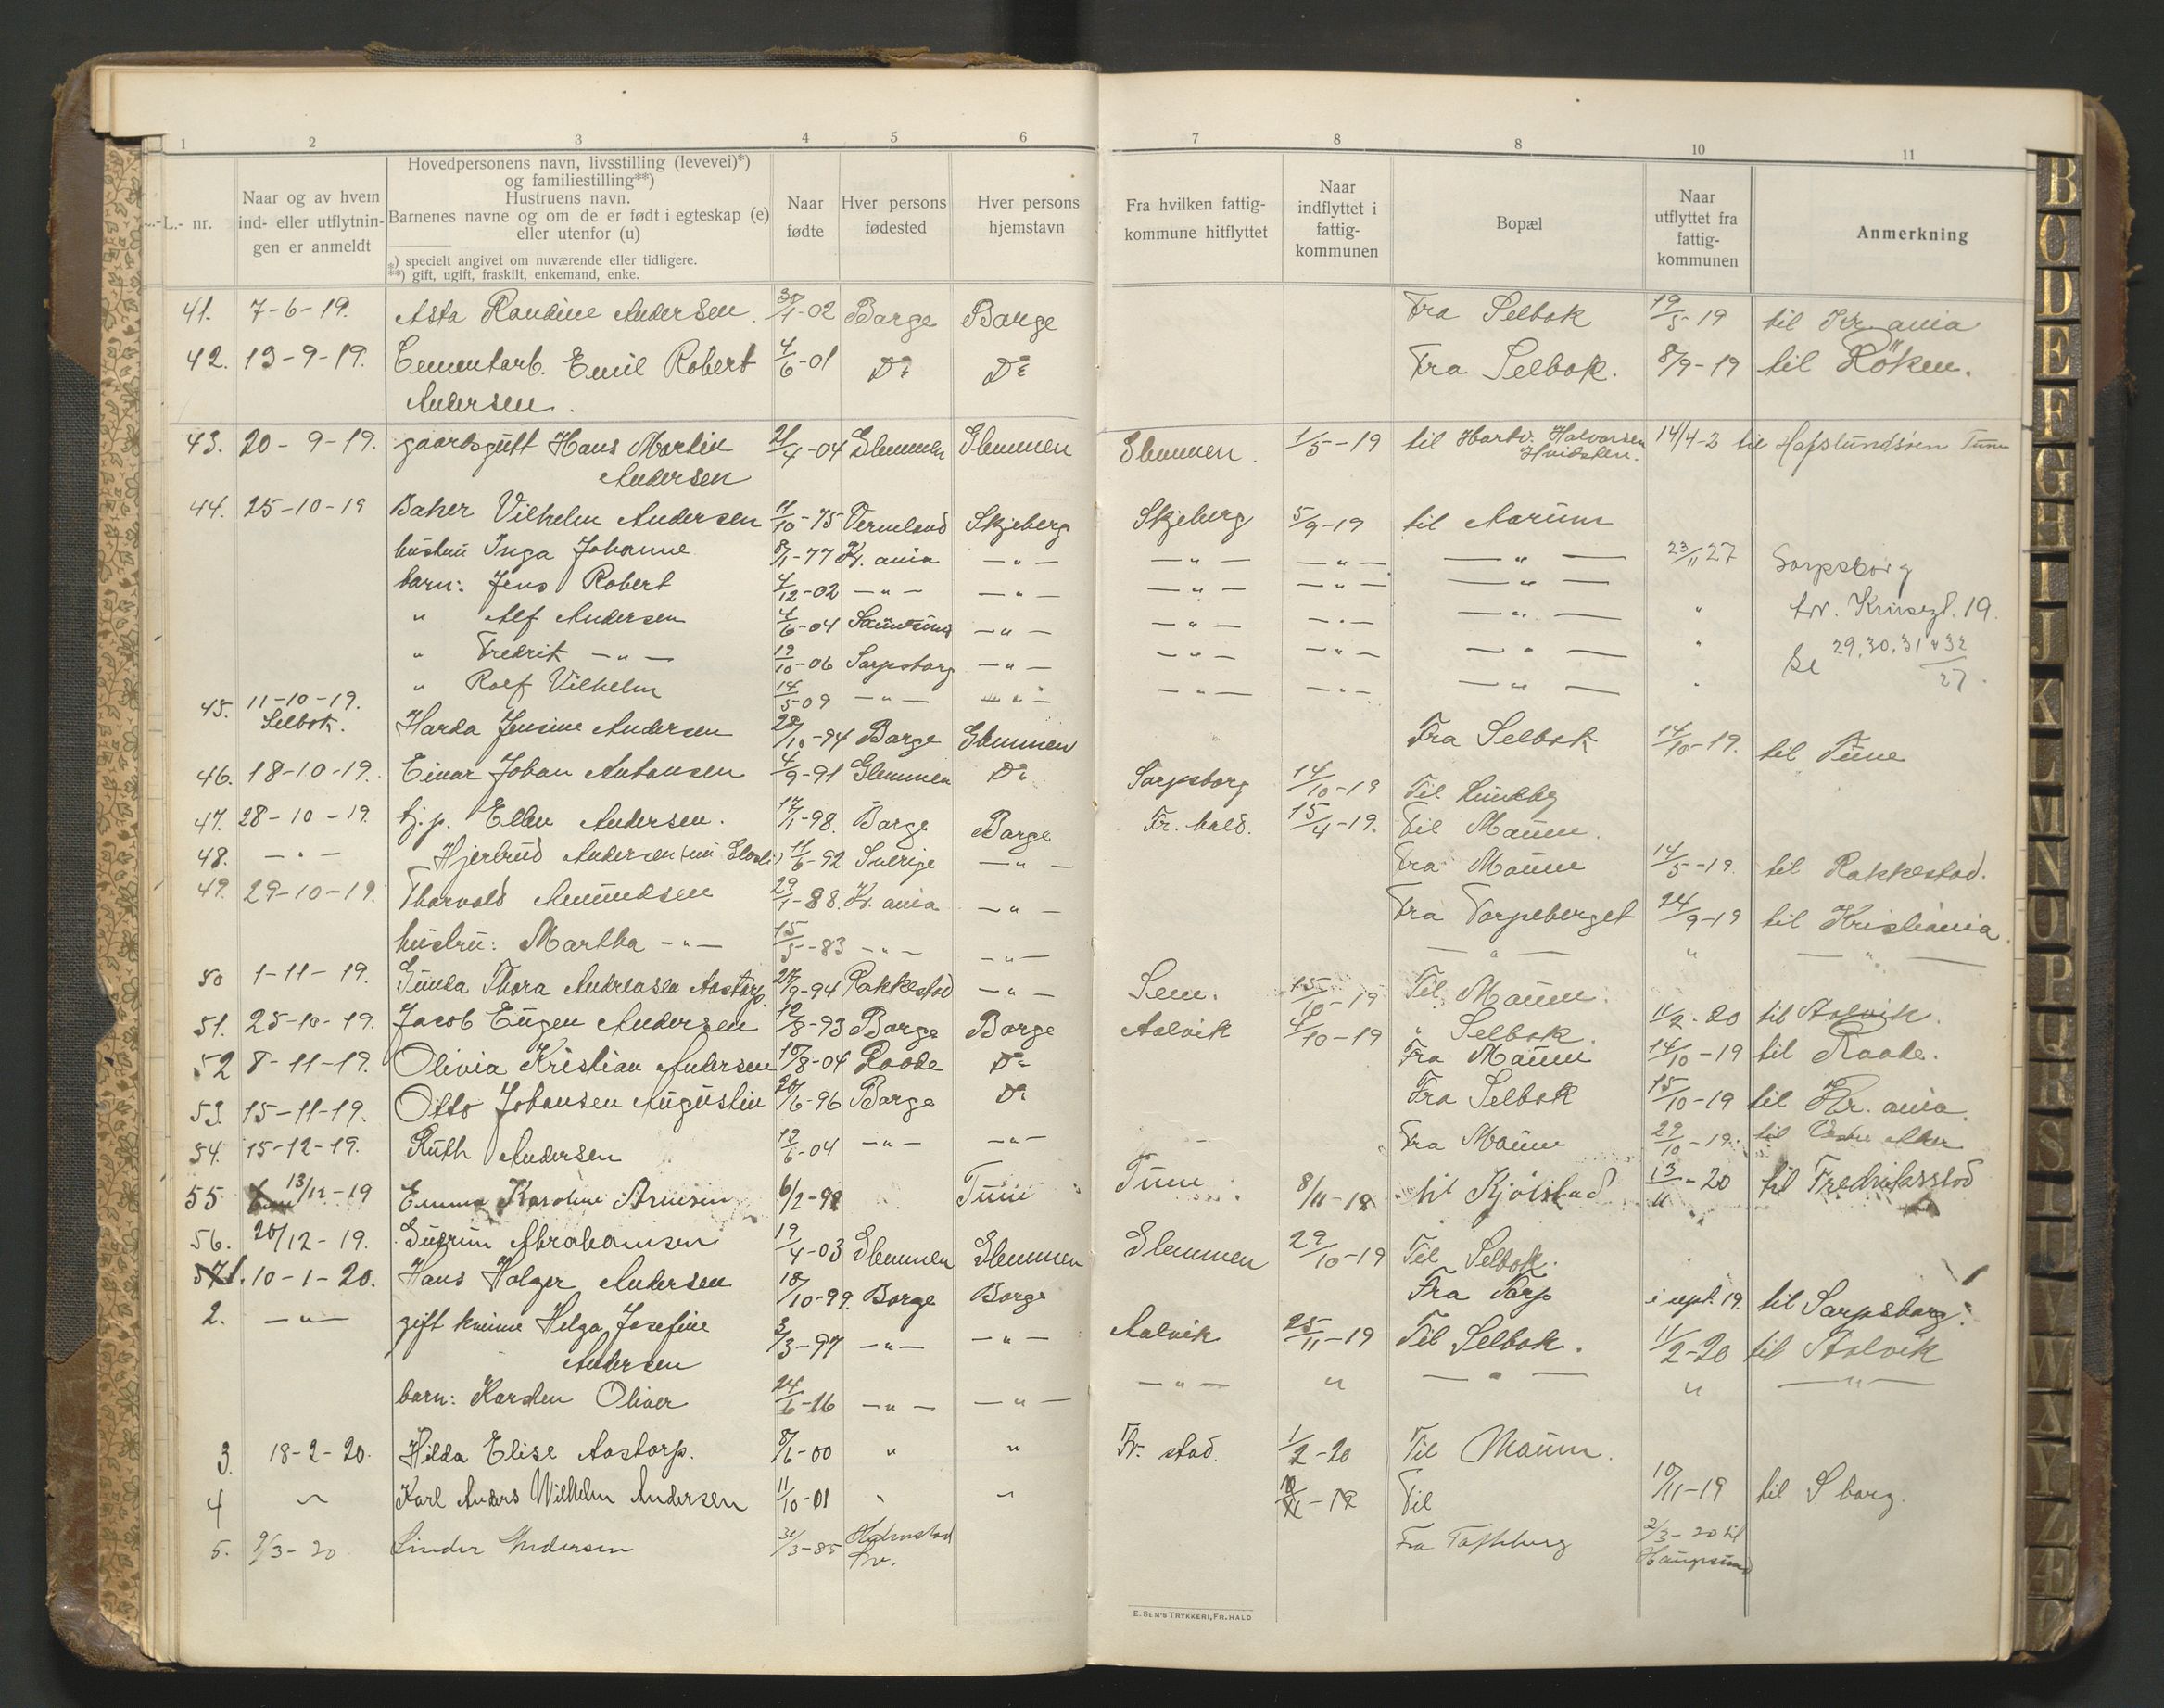 1 2 3 4 5 6 7 8 8 10 11
L.- nr.
Naar og av hvem
ind- eller utflytnin-
gen er anmeldt
Hovedpersonens navn, livsstilling (levevei)*)
og familiestilling**)
Hustruens navn.
Barnenes navne og om de er født i egteskap (e)
eller utenfor (u)
*) specielt angivet om nuværende eller tidligere.
**) gift, ugift, fraskilt, enkemand, enke.
Naar
fødte
Hver persons
fødested
Hver persons
hjemstavn
Fra hvilken fattig-
kommune hitflyttet
Naar
indflyttet i
fattig-
kommunen
Bopæl
Naar
utflyttet fra
fattig-
kommunen
Anmerkning
41. 7-6-19. Asta Randine Andersen. 30/1-02 Borge Borge Fra Selbak 19/5-19 til Kr.ania
42. 13-9-19. Cementarb. Emil Robert 4/6-01 Do Do Fra Selbak. 8/9-19 til Röken.
Andersen.
43. 20-9-19. gaardsgutt Hans Martin 21/4-04 Glemmen Glemmen Glemmen. 1/5-19 til Hartv. Halvorsen 14/4-2 til Hafslundsöen Tune
Andersen Hvidsten.
44. 25-10-19 Baker Vilhelm Andersen 11/10-75 Vermland Skjeberg Skjeberg 5/9-19 til Aarum
hustru Inga Johanne 8/1-77 Kr. ania -"- -"- -"- -"- 23/11 27 Sarpsborg
barn: Jens Robert 4/12-02 -"- -"- -"- -"- -"-
" Alf Andersen 4/6-04 -"- -"- -"- -"- " 19.
" Fredrik -"- 19/10-06 Sarpsborg -"- -"- -"- -"- " 29.30.31 32
" Rolf Vilhelm 14/5-09 -"- -"- -"- -"- -"- " 27.
45. 11-10-19.
Selbak. Harda Jensine Andersen 28/10-94 Borge Glemmen Fra Selbak 14/10-19. til Tune
46. 18-10-19. Einar Johan Antonsen 4/9-91 Glemmen Do Sarpsborg 14/10-19 Til Lundby
47. 28-10-19. tj.p. Ellen Andersen. 17/1-98. Borge Borge Fr. hald. 15/4-19. Til Maum.
48. -"- Hjertrud Andersen 11/6-92 Sverige -"- Fra Maum 14/5-19. til Rakkestad.
49. 29-10-19. Thorvald Amundsen 29/1-88. Kr. ania -"- Fra Torpeberget 24/9-19 til Kristiania.
hustru: Martha -"- 15/5-83 -"- -"- -"- " -"-
50 1-11-19. Gunda Thora Andreasen Aastorp. 27/9-94 Rakkestad -"- Sem. 15/10-19 Til Maum.
51. 25-10-19. Jacob Eugen Andersen 12/8-93 Borge Borge Aalvik 4/10-19 " Selbak. 11/2-20 til Aalvik.
52 8-11-19. Olivia Kristian Andersen 10/8-04 Raade Do Fra Maum 14/10-19 til Raade.
53. 15-11-19. Otto Johansen Augustin 20/6-96 Borge Do Fra Selbak 15/10-19 til Kr. ania.
54. 15-12-19. Ruth Andersen 19/6-04 -"- -"- Fra Maum 29/10-19. til Vestre Aker
55 13/12-19 Emma Karoline Arnesen 6/2-98 Tune Tune 8/11-18 til Kjölstad 13/11-20 til Fredriksstad
56. 20/12-19. Gudrun Abrahamsen 19/4-03 Glemmen Glemmen Glemmen 29/10-19 Til Selbak.
1. 10-1-20. Hans Holger Andersen 18/10-99. Borge Borge Fra Torp i sept. 19. til Sarpsborg.
2. -"- gift kvinne Helga Josefine 3/3-97 -"- -"- Aalvik 25/11-19 Til Selbak. 11/2-20 til Aalvik
Andersen
barn: Karsten Oliver 24/6-16 -"- -"- -"- " -"- " -"-
3. 18-2-20. Hilda Elise Aastorp. 8/6-00 " " Fr. stad. 1/2-20 Til Maum.
4 " Karl Anders Wilhelm Andersen 11/10-01 " " Til 10/11-19 til S.borg.
5. 9/3-20 Linder Andersen 31/3-85 Halmstad Fra 2/3-20 til
Sv. Haugesund
E. SEM'S TRYKKERI, FR.HALD
B
O
D
E
F
G
H
I
J
K
L
M
N
O
P
Q
R
S
T
V
W
X
Y
Z
Æ
Ø